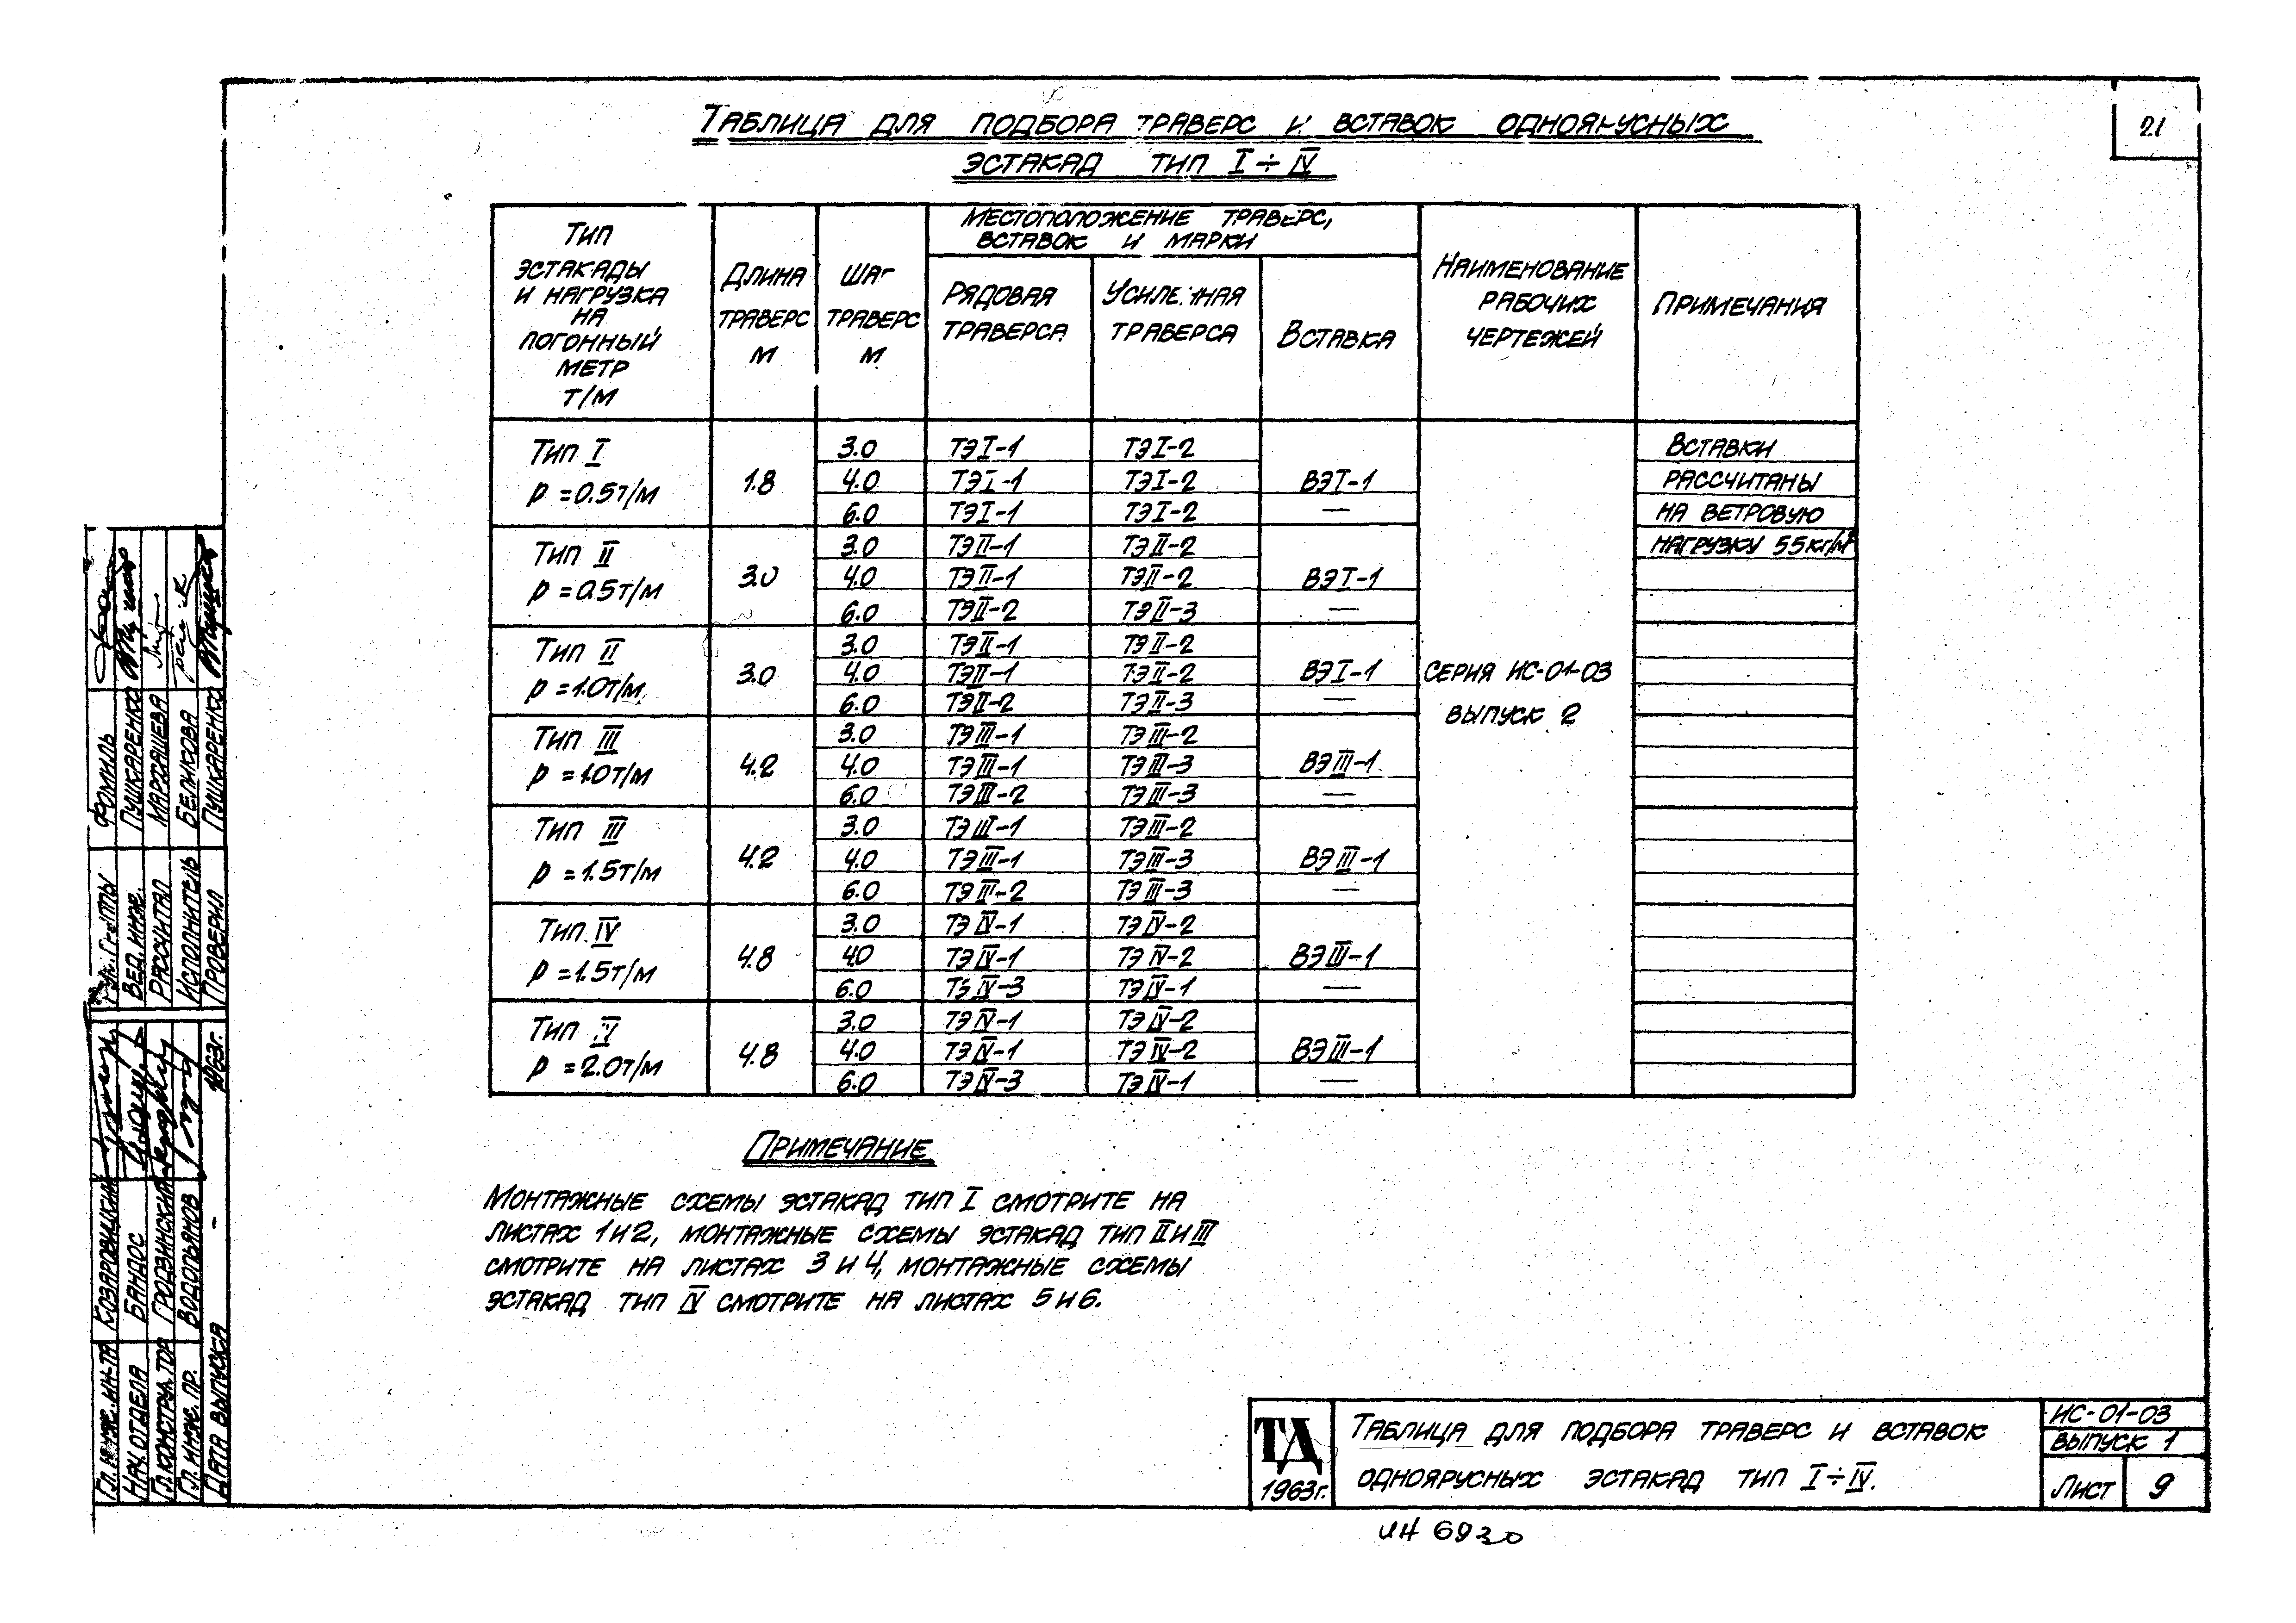 21
Таблица для подбора траверс и вставок одноярусных
эстакад тип I÷IV
Тип эстакады и нагрузка на погонный метр т/м
Длина траверс м
Шаг траверс м
Местоположение траверс, вставок и марки
Рядовая траверса
Усиленная траверса
Вставка
Наименование рабочих чертежей
Примечания
Тип I p=0.5т/м 1.8
3.0 ТЭI-1 ТЭI-2
4.0 ТЭI-1 ТЭI-2 ВЭI-1
6.0 ТЭI-1 ТЭI-2 —
Вставки
рассчитаны
на ветровую
нагрузку 55кг/м²
Тип II p=0.5т/м 3.0
3.0 ТЭII-1 ТЭII-2
4.0 ТЭII-1 ТЭII-2 ВЭI-1
6.0 ТЭII-2 ТЭII-3 —
Тип II p=1.0т/м 3.0
3.0 ТЭII-1 ТЭII-2
4.0 ТЭII-1 ТЭII-2 ВЭI-1
6.0 ТЭII-2 ТЭII-3 —
серия ИС-01-03
выпуск 2
Тип III p=1.0т/м 4.2
3.0 ТЭIII-1 ТЭIII-2
4.0 ТЭIII-1 ТЭIII-3 ВЭIII-1
6.0 ТЭIII-2 ТЭIII-3 —
Тип III p=1.5т/м 4.2
3.0 ТЭIII-1 ТЭIII-2
4.0 ТЭIII-1 ТЭIII-3 ВЭIII-1
6.0 ТЭIII-2 ТЭIII-3 —
Тип IV p=1.5т/м 4.8
3.0 ТЭIV-1 ТЭIV-2
4.0 ТЭIV-1 ТЭIV-2 ВЭIII-1
6.0 ТЭIV-3 ТЭIV-1 —
Тип IV p=2.0т/м 4.8
3.0 ТЭIV-1 ТЭIV-2
4.0 ТЭIV-1 ТЭIV-2 ВЭIII-1
6.0 ТЭIV-3 ТЭIV-1 —
Примечание
Монтажные схемы эстакад тип I смотрите на
листах 1 и 2, монтажные схемы эстакад тип II и III
смотрите на листах 3 и 4, монтажные схемы
эстакад тип IV смотрите на листах 5 и 6.
ТД
1963г.
Таблица для подбора траверс и вставок
одноярусных эстакад тип I÷IV.
ИС-01-03
выпуск 1
Лист 9
ИН 6930
Рук. группы Фомиль
Вед. инж. Пушкаренко
Рассчитал
Исполнитель Беликова
Проверил Пушкаренко
Гл. инж. ин-та Козаровицкий
Нач. отдела Бандос
Гл. конструктор Гродзинский
Гл. инж. пр. Водопьянов
Дата выпуска - 1963г.